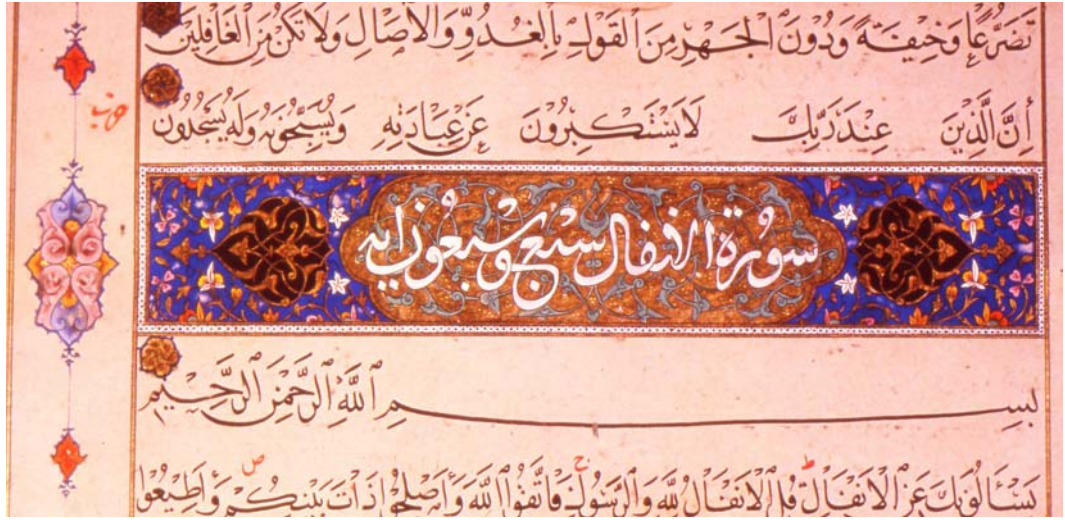 تَضَرُّعًا وَخِيفَةً وَدُونَ الْجَهْرِ مِنَ الْقَوْلِ بِالْغُدُوِّ وَالْآصَالِ وَلَا تَكُنْ مِنَ الْغَافِلِينَ
إِنَّ الَّذِينَ عِنْدَ رَبِّكَ لَا يَسْتَكْبِرُونَ عَنْ عِبَادَتِهِ وَيُسَبِّحُونَهُ وَلَهُ يَسْجُدُونَ
سورة الانفال سبع وسبعون اية
بِسْمِ اللَّهِ الرَّحْمَنِ الرَّحِيمِ
يَسْأَلُونَكَ عَنِ الْأَنْفَالِ قُلِ الْأَنْفَالُ لِلَّهِ وَالرَّسُولِ فَاتَّقُوا اللَّهَ وَأَصْلِحُوا ذَاتَ بَيْنِكُمْ وَأَطِيعُوا